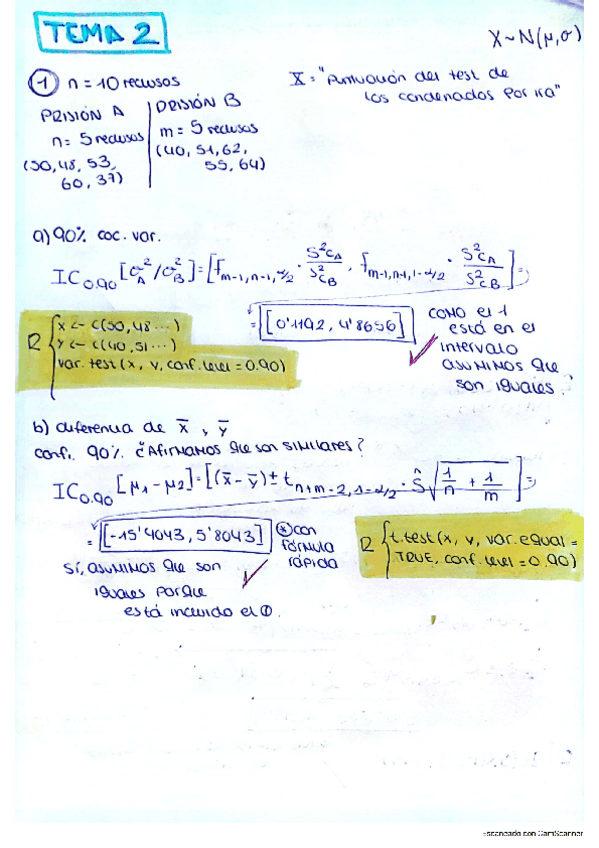 TEMA 2
X~N(μ,σ)
① n = 10 reclusos
X = "Puntuación del test de
los condenados por ira"
PRISIÓN A
n = 5 reclusos
(50, 48, 53,
60, 37)
PRISIÓN B
m = 5 reclusos
(40, 51, 62,
55, 64)
a) 90% coc. var.
IC0.90 [σ²A/σ²B] = [fm-1,n-1,α/2 · S²cA/S²cB , fm-1,n-1,1-α/2 · S²cA/S²cB] =
= [0'1192, 4'8656] ✓
como el 1
está en el
intervalo
asumimos que
son iguales.
R { x <- c(50,48...)
y <- c(40,51...)
var.test(x, y, conf.level = 0.90)
b) diferencia de x̄, ȳ
conf. 90% ¿Afirmamos que son similares?
IC0.90 [μ1 - μ2] = [(x̄ - ȳ) ± tn+m-2,1-α/2 · Ŝ √(1/n + 1/m)] =
= [-15'4043, 5'8043]
⊛ con
fórmula
rápida
R { t.test(x, y, var.equal =
TRUE, conf.level = 0.90)
sí, asumimos que son ✓
iguales porque
está incluido el 0.
Escaneado con CamScanner